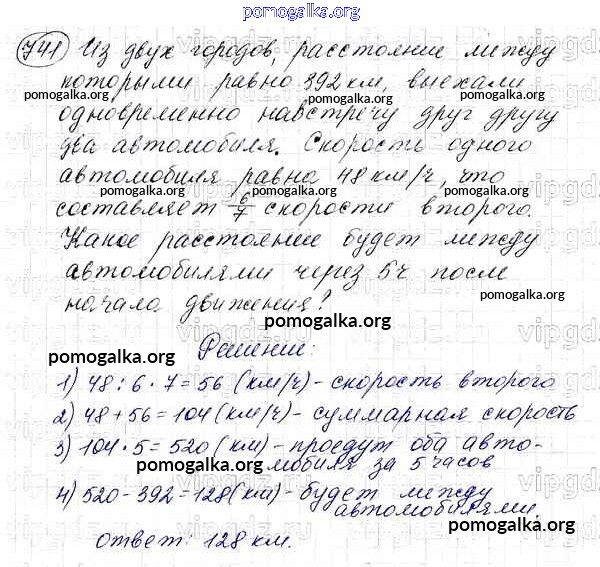 pomogalka.org
741 Из двух городов, расстояние между
которыми равно 392 км, выехали
pomogalka.org pomogalka.org
одновременно навстречу друг другу
два автомобиля. Скорость одного
pomogalka.org pomogalka.org
автомобиля равна 48 км/ч, что
pomogalka.org pomogalka.org
составляет 6/7 скорости второго.
Какое расстояние будет между
pomogalka.org pomogalka.org
автомобилями через 5ч после
начала движения? pomogalka.org
pomogalka.org
Решение:
pomogalka.org
1) 48 : 6 · 7 = 56 (км/ч) - скорость второго
pomogalka.org
2) 48 + 56 = 104 (км/ч) - суммарная скорость
3) 104 · 5 = 520 (км) - проедут оба авто-
pomogalka.org мобиля за 5 часов
4) 520 - 392 = 128 (км) - будет между
автомобилями.
pomogalka.org
ответ: 128 км.